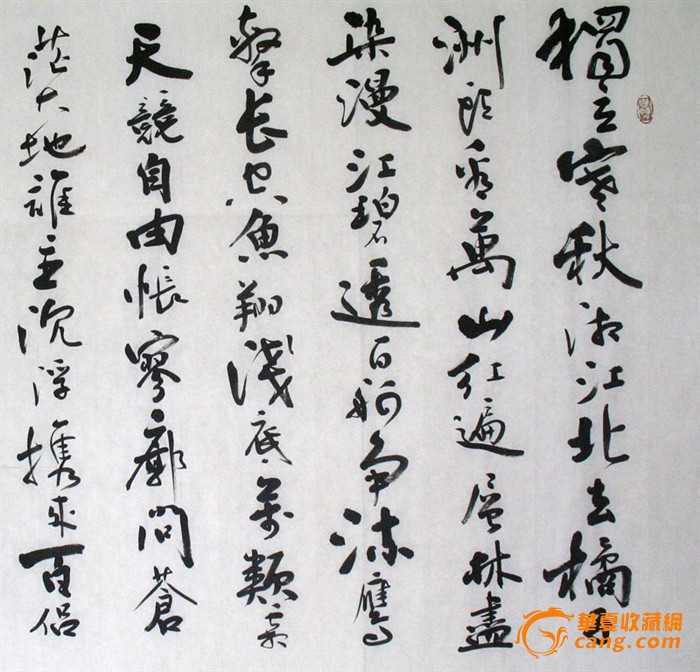 獨立寒秋湘江北去橘子
洲頭看萬山紅遍層林盡
染漫江碧透百舸争流鷹
擊長空魚翔淺底萬類霜
天競自由悵寥廓問蒼
茫大地誰主沉浮携來百侣
華夏收藏網
cang.com